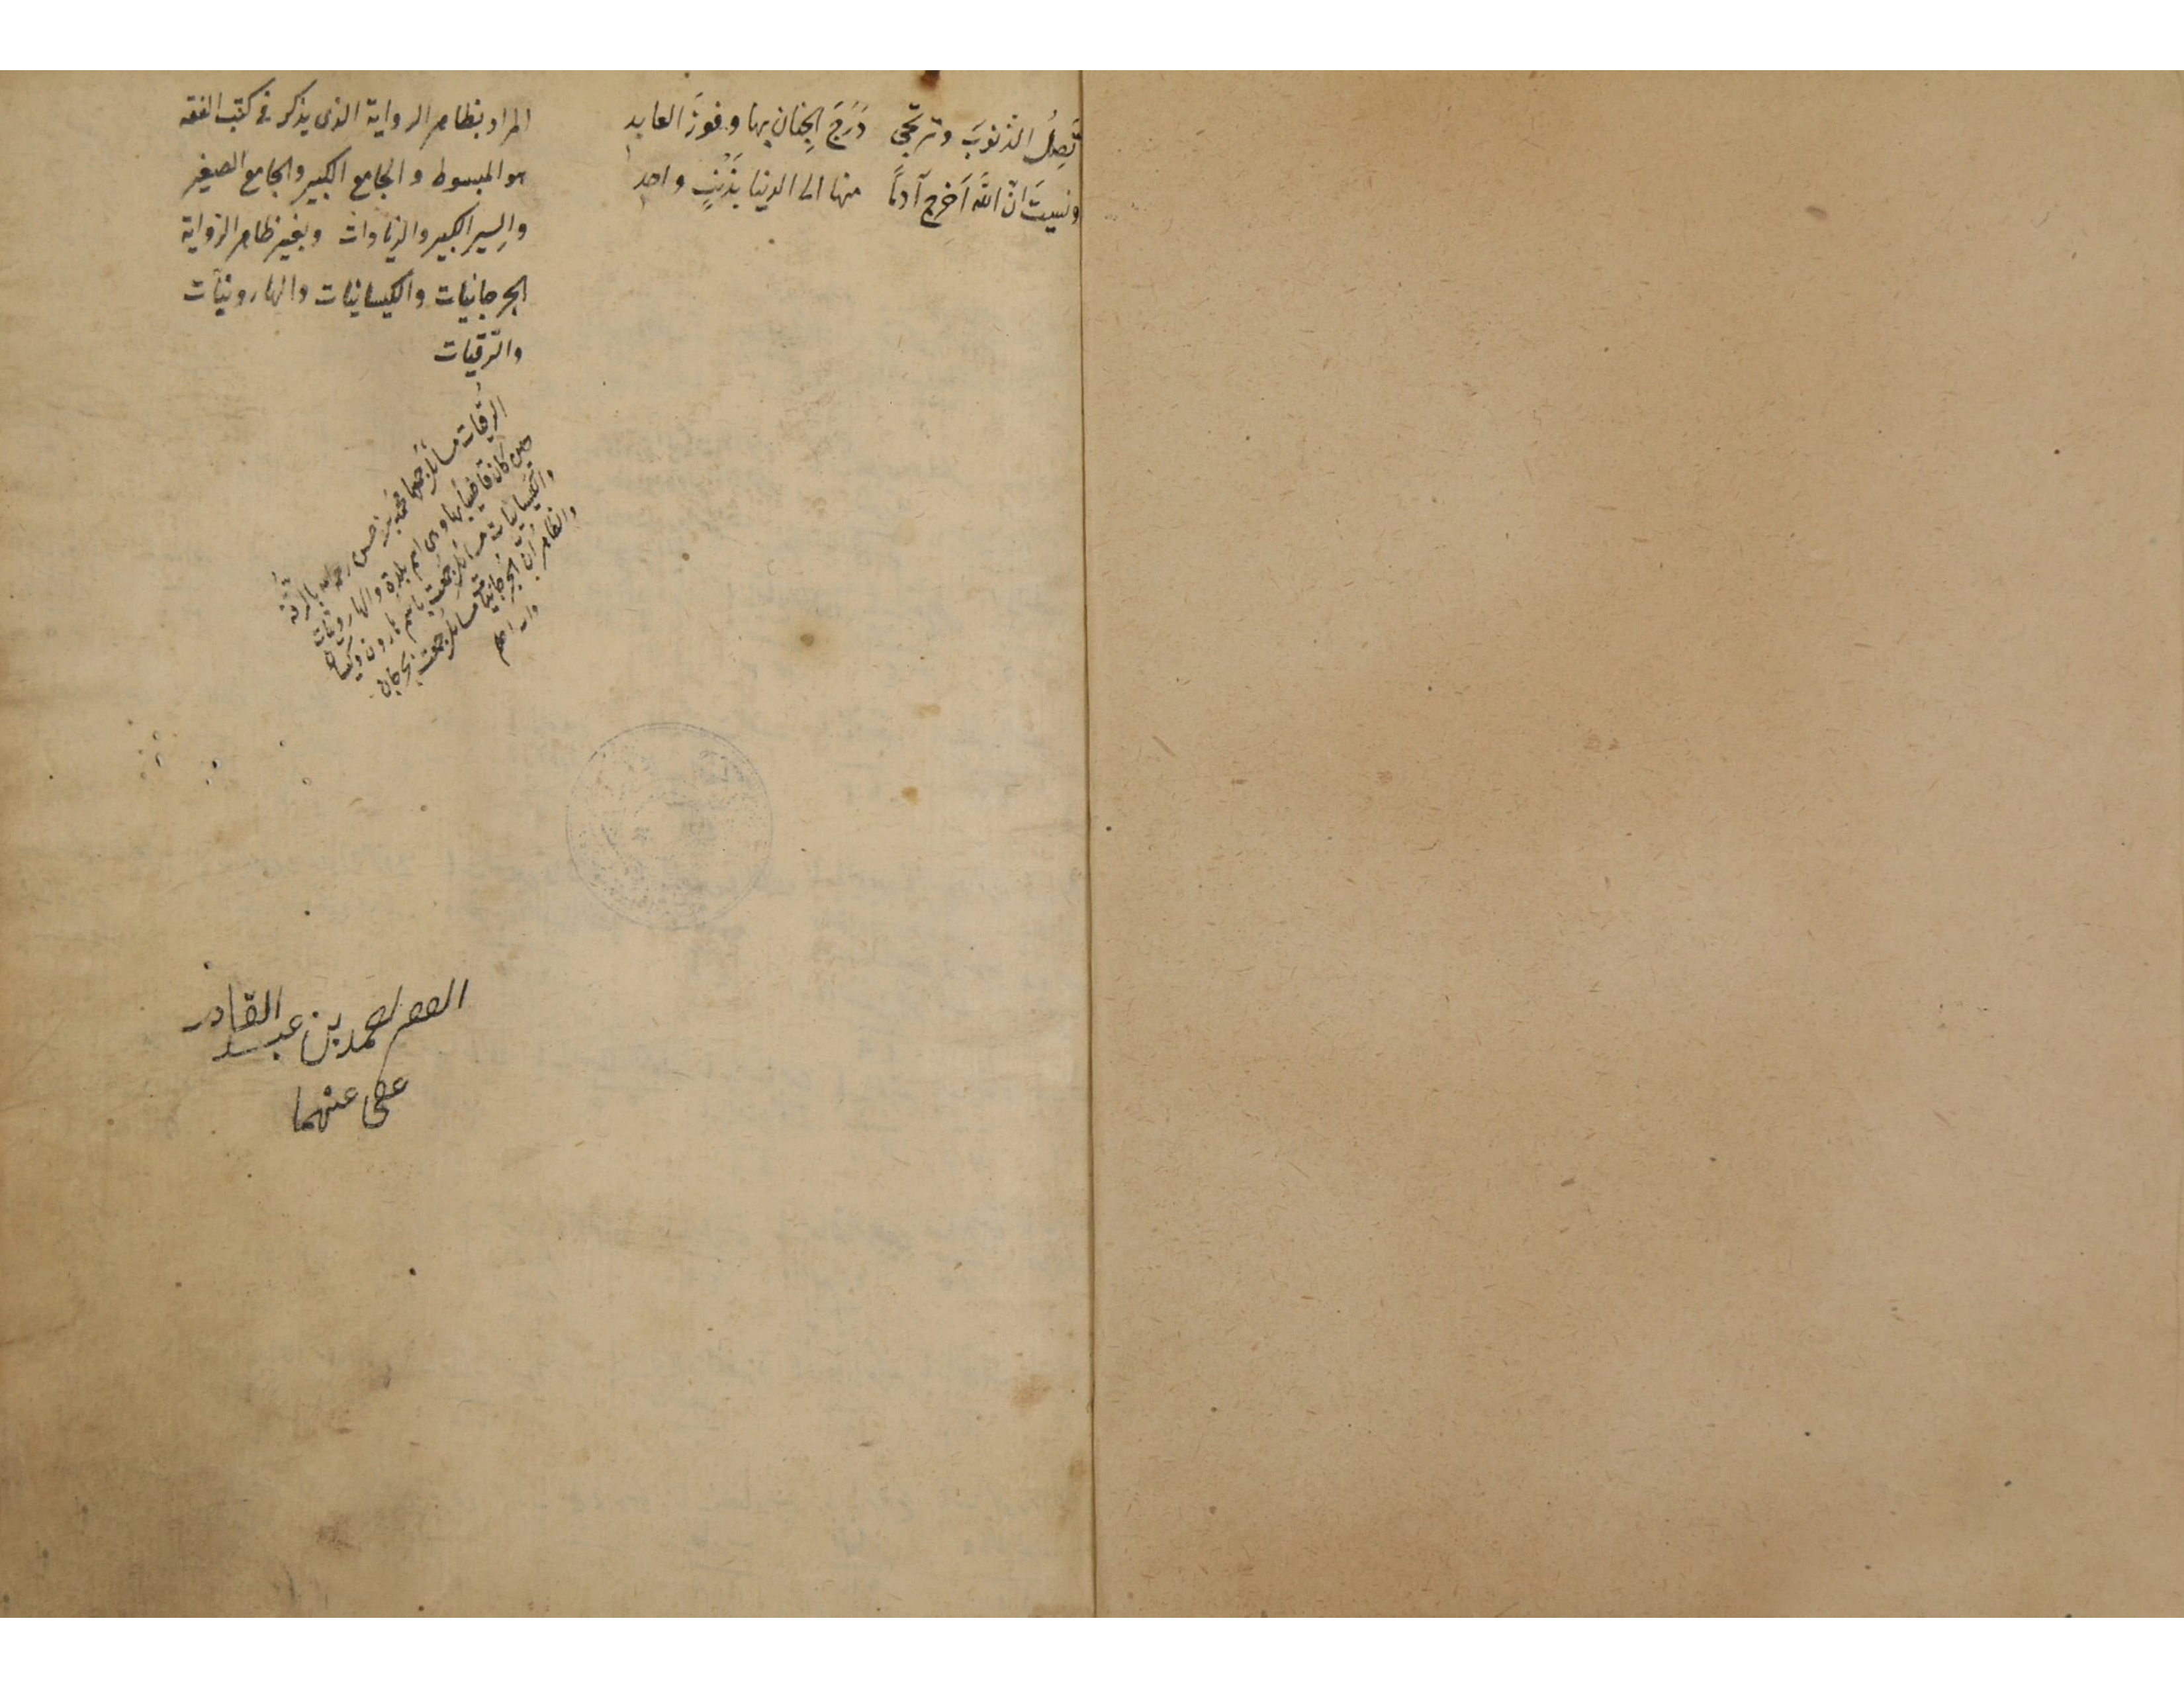 تَصِلُ الذنوبَ وترتجي دَرَجَ الجِنان بها وفوزَ العابد
ونسيتَ انّ اللّٰه اَخرج آدمًا منها الى الدنيا بذَنْبٍ واحد
المراد بظاهر الرواية الذى يذكر فى كتب الفقه
هو المبسوط والجامع الكبير والجامع الصغير
والسير الكبير والزيادات وبغير ظاهر الرواية
الجرجانيات والكيسانيات والهارونيات
والرّقيات
الرقيات مسائل جمعها محمد بن حسن رحمه الله بالرَّقَّة
حين كان قاضيا بها وهى اسم بلدة والهارونيات
والكيسانيات مسائل جُمعت باسم هارون وكيسان
والظاهر ان الجرجانيات مسائل جمعت بجرجان
والله اعلم
الفقير محمد بن عبد القادر
عفى عنهما